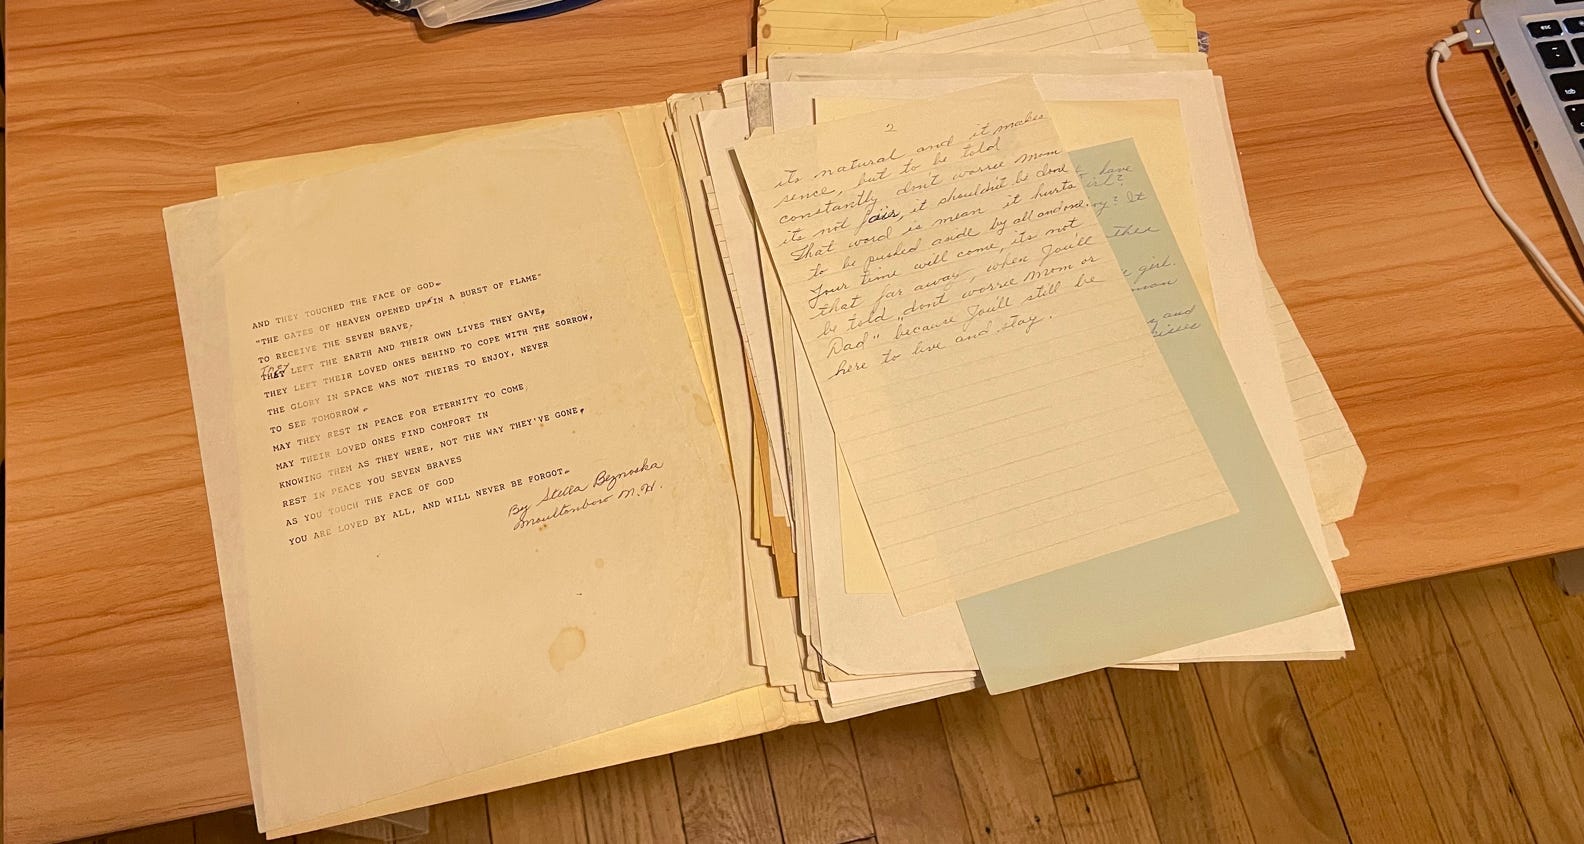 AND THEY TOUCHED THE FACE OF GOD.
"THE GATES OF HEAVEN OPENED UP IN A BURST OF FLAME"
TO RECEIVE THE SEVEN BRAVE,
THEY LEFT THE EARTH AND THEIR OWN LIVES THEY GAVE,
THEY LEFT THEIR LOVED ONES BEHIND TO COPE WITH THE SORROW,
THE GLORY IN SPACE WAS NOT THEIRS TO ENJOY, NEVER
TO SEE TOMORROW.
MAY THEY REST IN PEACE FOR ETERNITY TO COME,
MAY THEIR LOVED ONES FIND COMFORT IN
KNOWING THEM AS THEY WERE, NOT THE WAY THEY'VE GONE,
REST IN PEACE YOU SEVEN BRAVES
AS YOU TOUCH THE FACE OF GOD
YOU ARE LOVED BY ALL, AND WILL NEVER BE FORGOT.
By Stella Beznoska
Moultonboro N.H.
2
its natural and it makes
sence, but to be told
constantly don't worrie Mom
its not fair, it shouldn't be done
That word is mean it hurts
to be pushed aside by all and one.
Your time will come, its not
that far away, when You'll
be told "don't worrie Mom or
Dad" because You'll still be
here to live and stay.
have
girl?
It
then
girl.
and
esc
tab